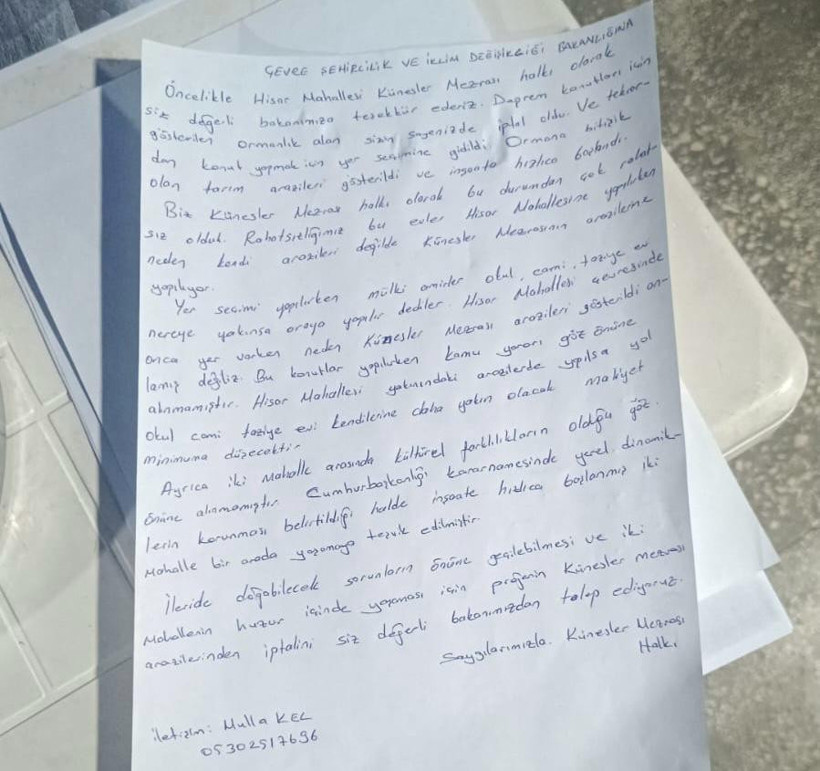 ÇEVRE ŞEHİRCİLİK VE İKLİM DEĞİŞİKLİĞİ BAKANLIĞINA
Öncelikle Hisar Mahallesi Künesler Mezrası halkı olarak
siz değerli bakanımıza teşekkür ederiz. Deprem konutları için
gösterilen ormanlık alan sizin sayenizde iptal oldu. Ve tekrar-
dan konut yapmak için yer seçimine gidildi. Ormana bitişik
olan tarım arazileri gösterildi ve inşaata hızlıca başlandı.
Biz Künesler Mezrası halkı olarak bu durumdan çok rahat-
sız olduk. Rahatsızlığımız bu evler Hisar Mahallesine yapılırken
neden kendi arazileri değilde Künesler Mezrasının arazilerine
yapılıyor.
Yer seçimi yapılırken mülki amirler okul, cami, taziye evi
nereye yakınsa oraya yapılır dediler. Hisar Mahallesi çevresinde
onca yer varken neden Künesler Mezrası arazileri gösterildi an-
lamış değiliz. Bu konutlar yapılırken kamu yararı göz önüne
alınmamıştır. Hisar Mahallesi yakınındaki arazilerde ypılsa yol
okul cami taziye evi kendilerine daha yakın olacak maliyet
minimuma düşecektir.
Ayrıca iki Mahalle arasında kültürel farklılıkların olduğu göz
önüne alınmamıştır. Cumhurbaşkanlığı kararnamesinde yerel dinamik-
lerin korunması belirtildiği halde inşaate hızlıca başlanmış iki
Mahalle bir arada yaşamaya teşvik edilmiştir.
İleride doğabilecek sorunların önüne geçilebilmesi ve iki
Mahallenin huzur içinde yaşaması için projenin Künesler mezrası
arazilerinden iptalini siz değerli bakanımızdan talep ediyoruz.
Saygılarımızla. Künesler Mezrası
Halkı
iletişim: Mulla KEÇ
05302517696